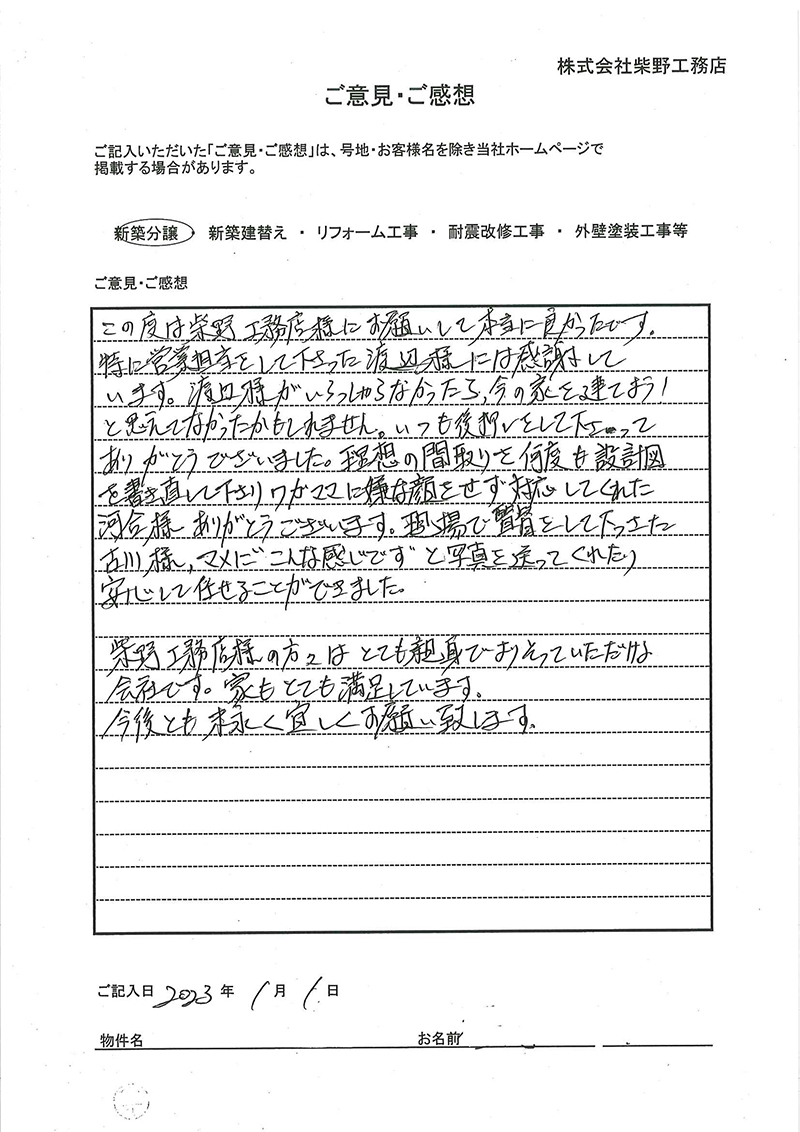 株式会社柴野工務店
ご意見・ご感想
ご記入いただいた「ご意見・ご感想」は、号地・お客様名を除き当社ホームページで
掲載する場合があります。
新築分譲 ・ 新築建替え ・ リフォーム工事 ・ 耐震改修工事 ・ 外壁塗装工事等
ご意見・ご感想
この度は柴野工務店様にお願いして本当に良かったです。
特に営業担当をして下さった渡辺様には感謝して
います。渡辺様がいらっしゃらなかったら、今の家を建てよう!
と思えてなかったかもしれません。いつも後押しをして下さって
ありがとうございました。理想の間取りを何度も設計図
を書き直して下さりワガママに嫌な顔をせず対応してくれた
河合様ありがとうございます。現場で監督をして下さった
古川様、マメに"こんな感じです"と写真を送ってくれたり
安心して任せることができました。
柴野工務店様の方々はとても親身でよりそっていただける
会社です。家もとても満足しています。
今後とも末永く宜しくお願い致します。
ご記入日 2023 年 1 月 1 日
物件名 お名前